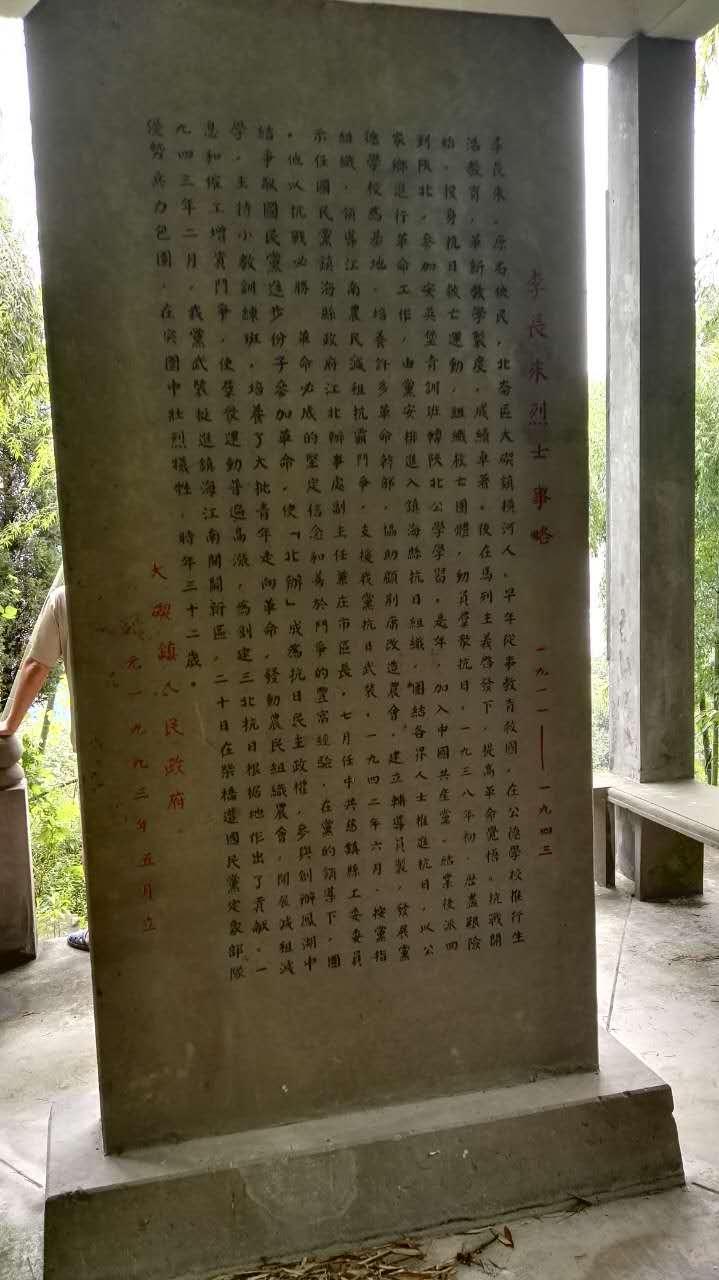 李長來烈士事略 一九一一——一九四三
李長來，原名俊民，北崙區大碶鎮横河人。早年從事教育救國，在公德學校推行生
活教育，革新教學製度，成績卓著。後在馬列主義啓發下，提高革命覺悟。抗戰開
始，投身抗日救亡運動，組織救亡團體，動員羣衆抗日，一九三八年初，歴盡艱險
到陜北，參加安吴堡青訓班轉陜北公學學習，是年，加入中國共産黨。結業後派回
家鄉進行革命工作，由黨安排進入鎮海縣抗日組織，團結各界人士推進抗日，以公
德學校爲基地，培養許多革命幹部，協助顧别席改造農會，建立輔導員製，發展黨
組織，領導江南農民減租抗霸鬥争，支援我黨抗日武裝，一九四二年六月，按黨指
示任國民黨鎮海縣政府江北辦事處副主任兼庄市區長，七月任中共慈鎮縣工委委員
。他以抗戰必勝、革命必成的堅定信念和善於鬥争的豐富經驗，在黨的領導下，團
結争取國民黨進步份子參加革命，使「北辦」成爲抗日民主政權，參與創辦鳳湖中
學，主持小教訓練班，培養了大批青年走向革命，發動農民組織農會，開展減租減
息和僱工增資鬥争，使羣衆運動普遍高漲，爲創建三北抗日根據地作出了貢獻。一
九四三年二月，我黨武裝挺進鎮海江南開闢新區，二十日在柴橋遭國民黨定象部隊
優勢兵力包圍，在突圍中壯烈犧牲，時年三十二歲。
大碶鎮人民政府
公元一九九三年五月立